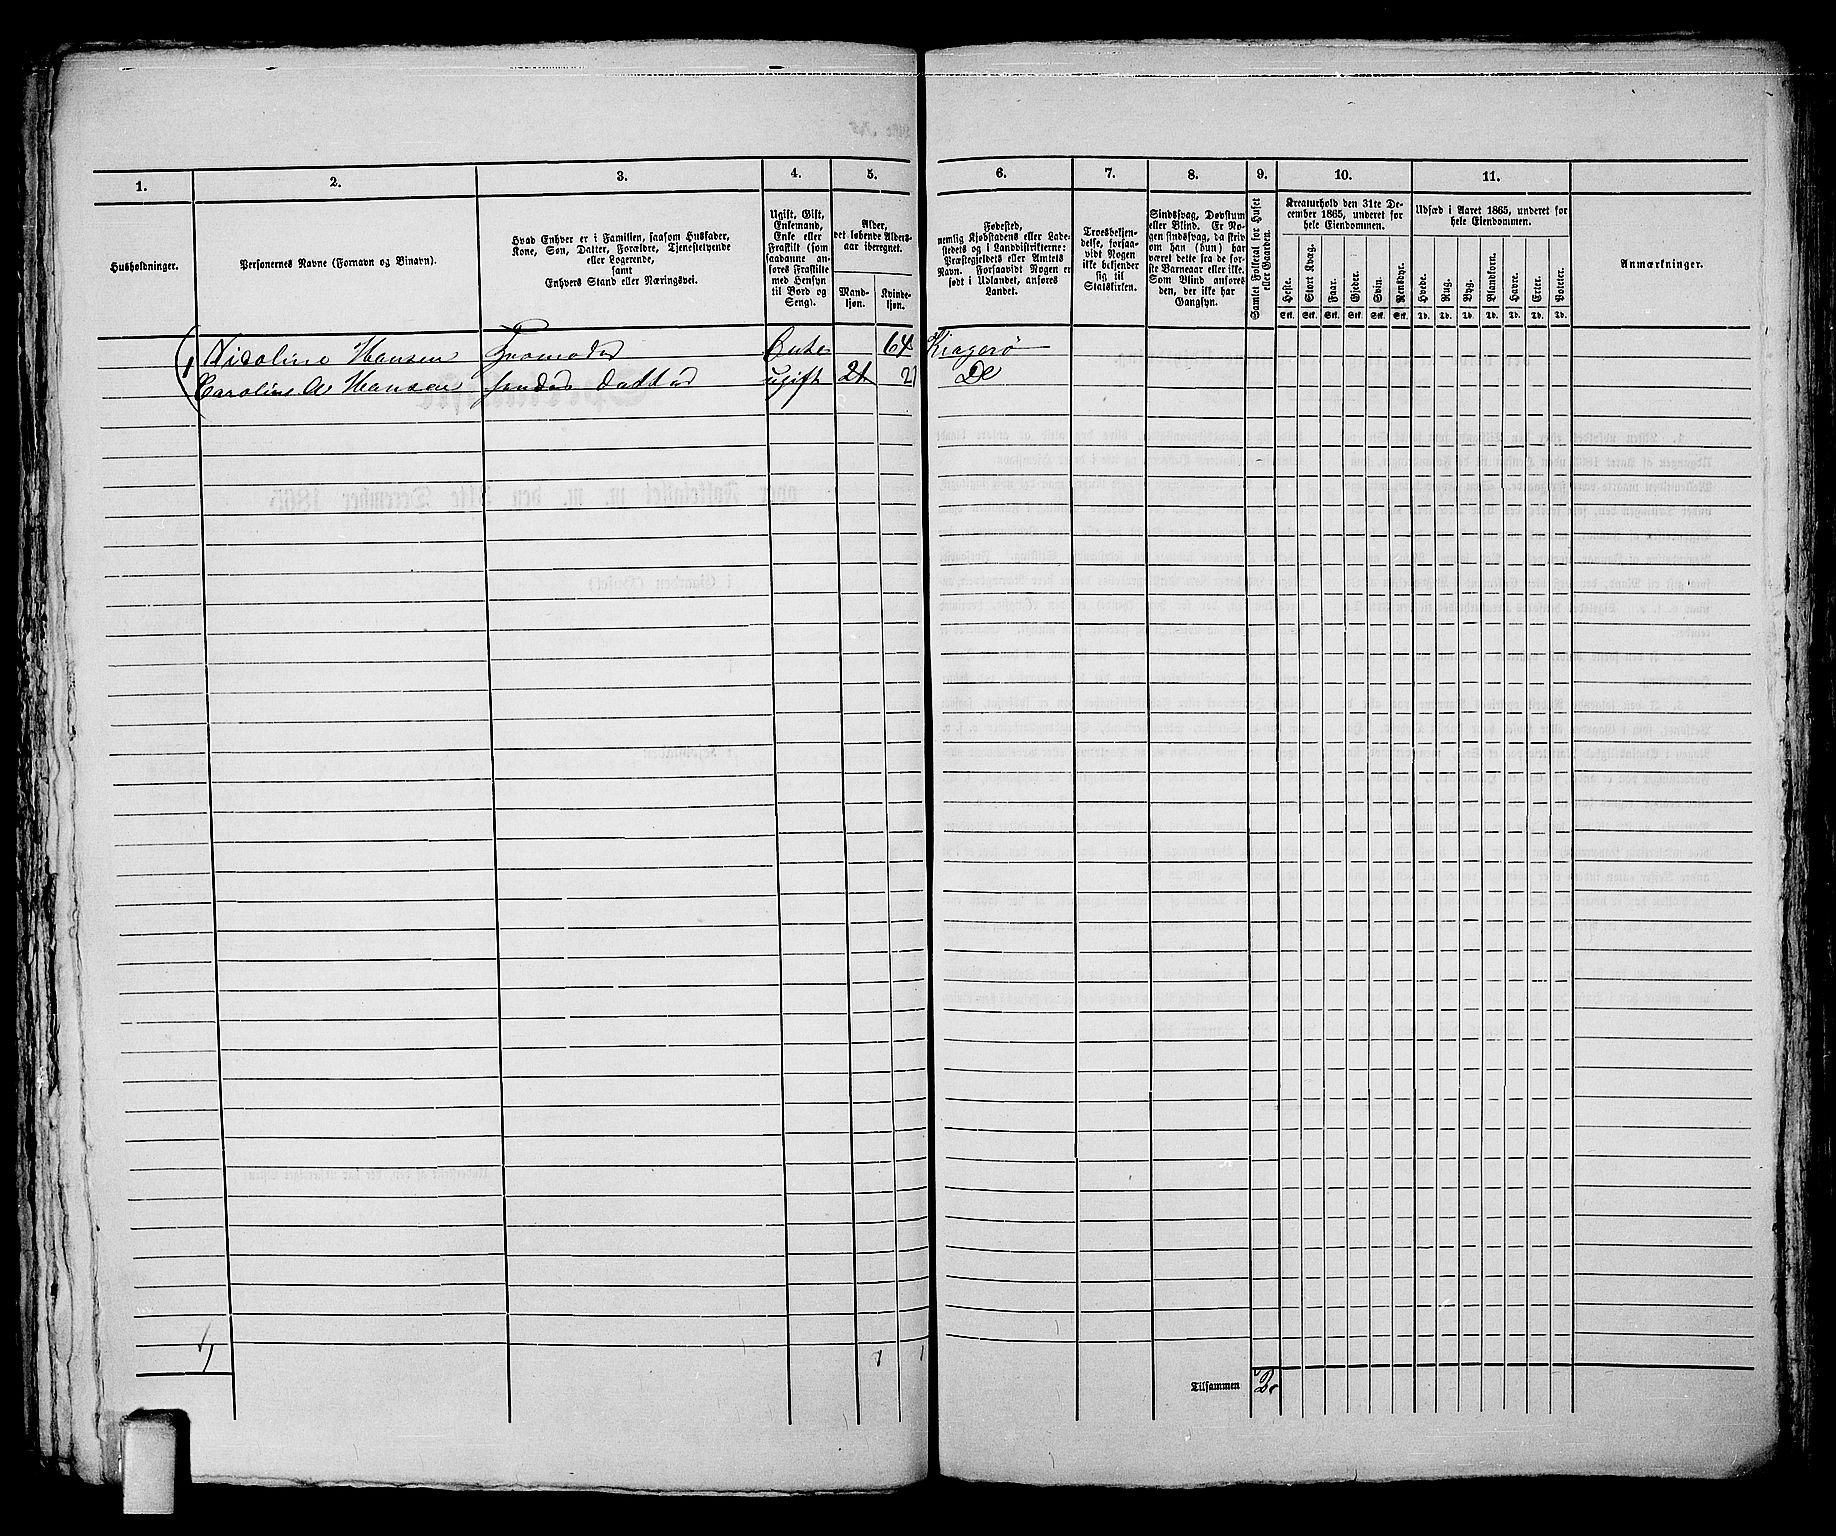 1. 2. 3. 4. 5. 6. 7. 8. 9. 10. 11.
Husholdninger.
Personernes Navne (Fornavn og Binavn).
Hvad Enhver er i Familien, saasom Husfader,
Kone, Søn, Datter, Forældre, Tjenestetyende
eller Logerende,
samt
Enhvers Stand eller Næringsvei.
Ugift, Gift,
Enkemand,
Enke eller
Fraskilt (som
saadanne an-
føres Fraskilte
med Hensyn
til Bord og
Seng).
Alder,
det løbende Alders-
aar iberegnet.
Mand-
kjøn.
Kvinde-
kjøn.
Fødested,
nemlig Kjøbstadens eller Lade-
stedets og i Landdistrikterne:
Præstegjeldets eller Amtets
Navn. Forsaavidt Nogen er
født i Udlandet, anføres
Landet.
Troesbekjen-
delse, forsaa-
vidt Nogen
ikke bekjender
sig til
Statskirken.
Sindssvag, Døvstum
eller Blind. Er No-
gen sindssvag, da skriv
om han (hun) har
været dette fra de før-
ste Barneaar eller ikke.
Som Blind anføres
den, der ikke har
Gangsyn.
Samlet Folketal for Huset
eller Gaarden.
Kreaturhold den 31te De-
cember 1865, underet for
hele Eiendommen.
Heste. Stort Kvæg. Faar. Gjeder. Svin. Rensdyr.
Stk. Stk. Stk. Stk. Stk. Stk.
Udsæd i Aaret 1865, underet for
hele Eiendommen.
Hvede. Rug. Byg. Blandkorn. Havre. Erter. Poteter.
Td. Td. Td. Td. Td. Td. Td.
Anmærkninger.
1 Nicoline Hansen Enke 64 Kragerø
Caroline Hansen hendes Datter ugift 21 21 Do
1 1 1
Tilsammen 2